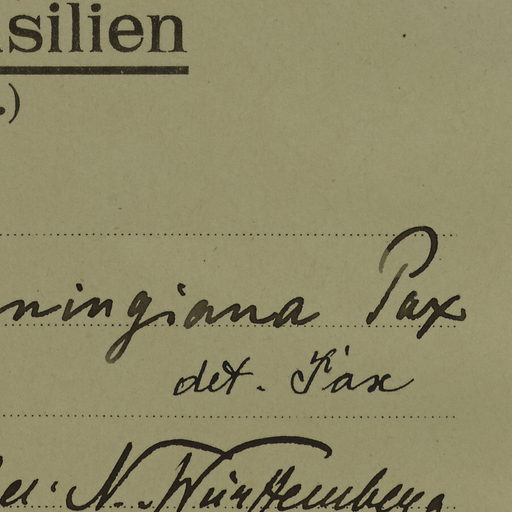 silien
.)
ningiana Pax
det. Pax
N. Württemberg